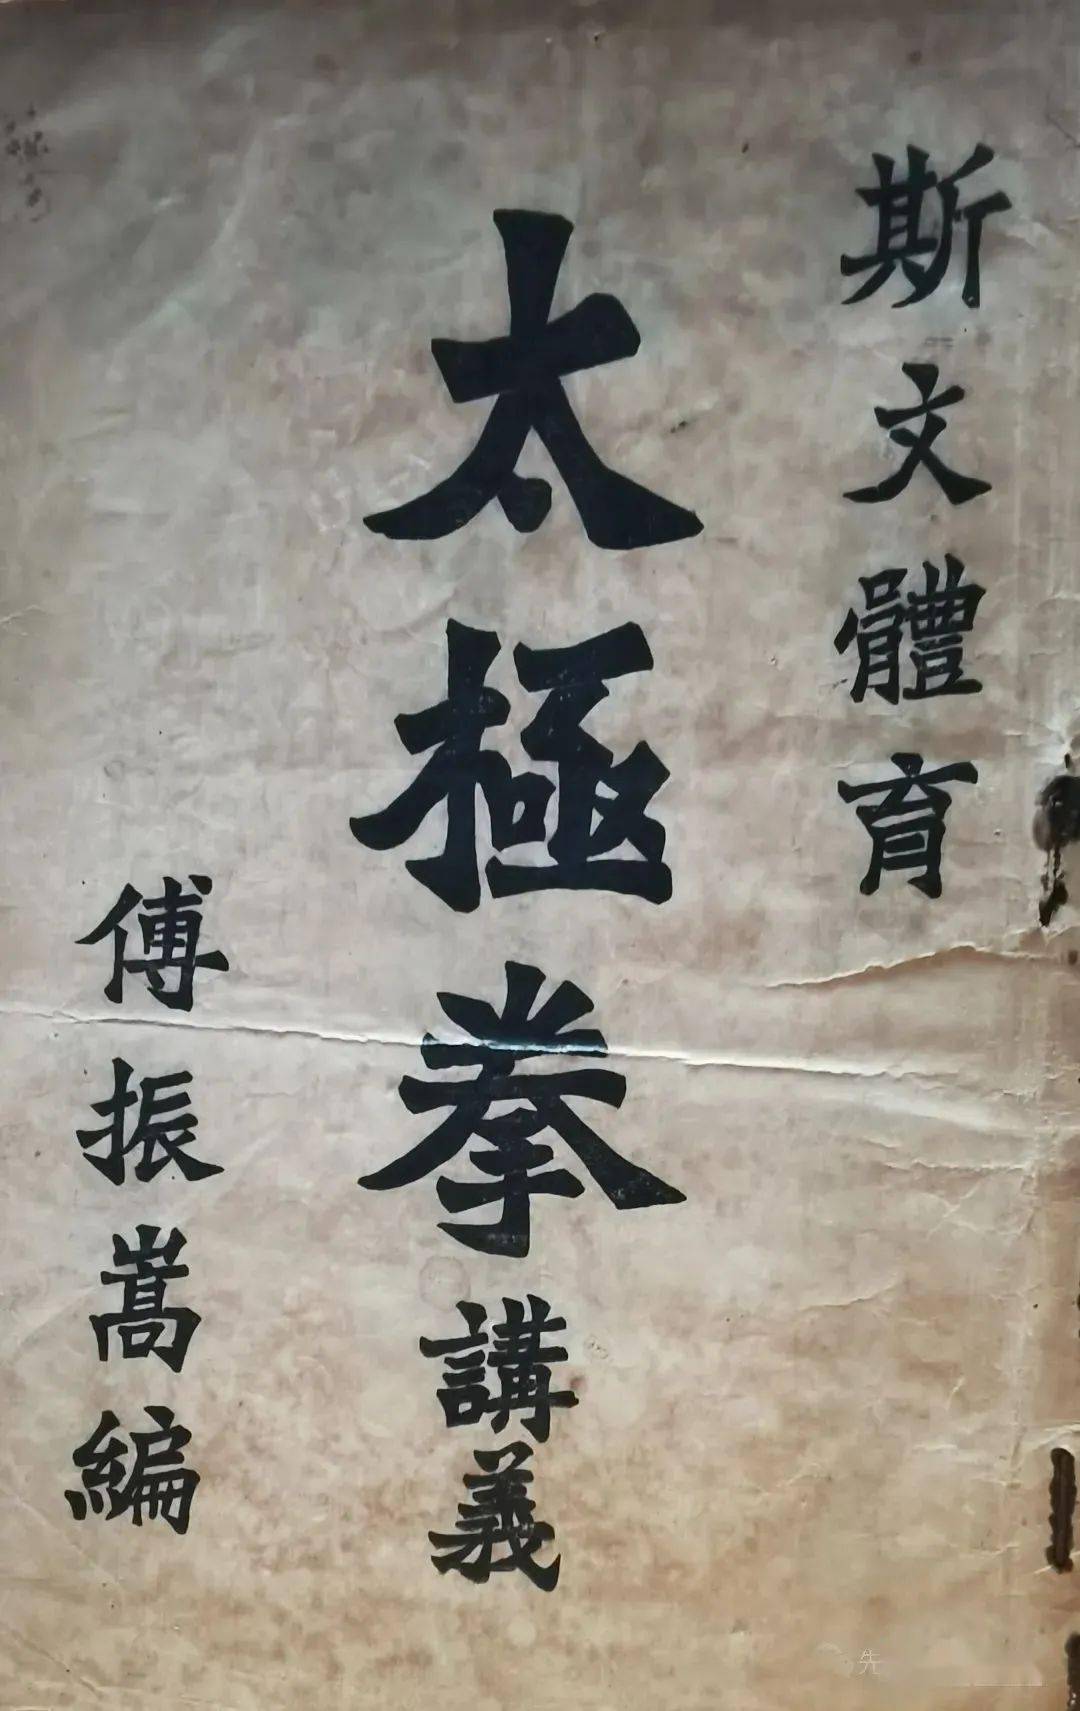 斯文體育
太極拳講義
傅振嵩編
先